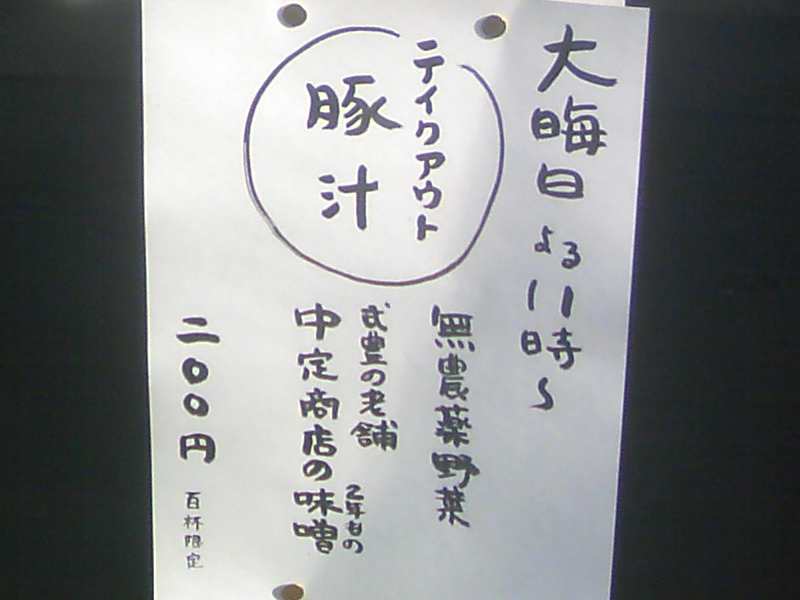 大晦日 よる11時〜
テイクアウト
豚汁
無農薬野菜
武豊の老舗
2年もの
中定商店の味噌
二〇〇円
百杯限定